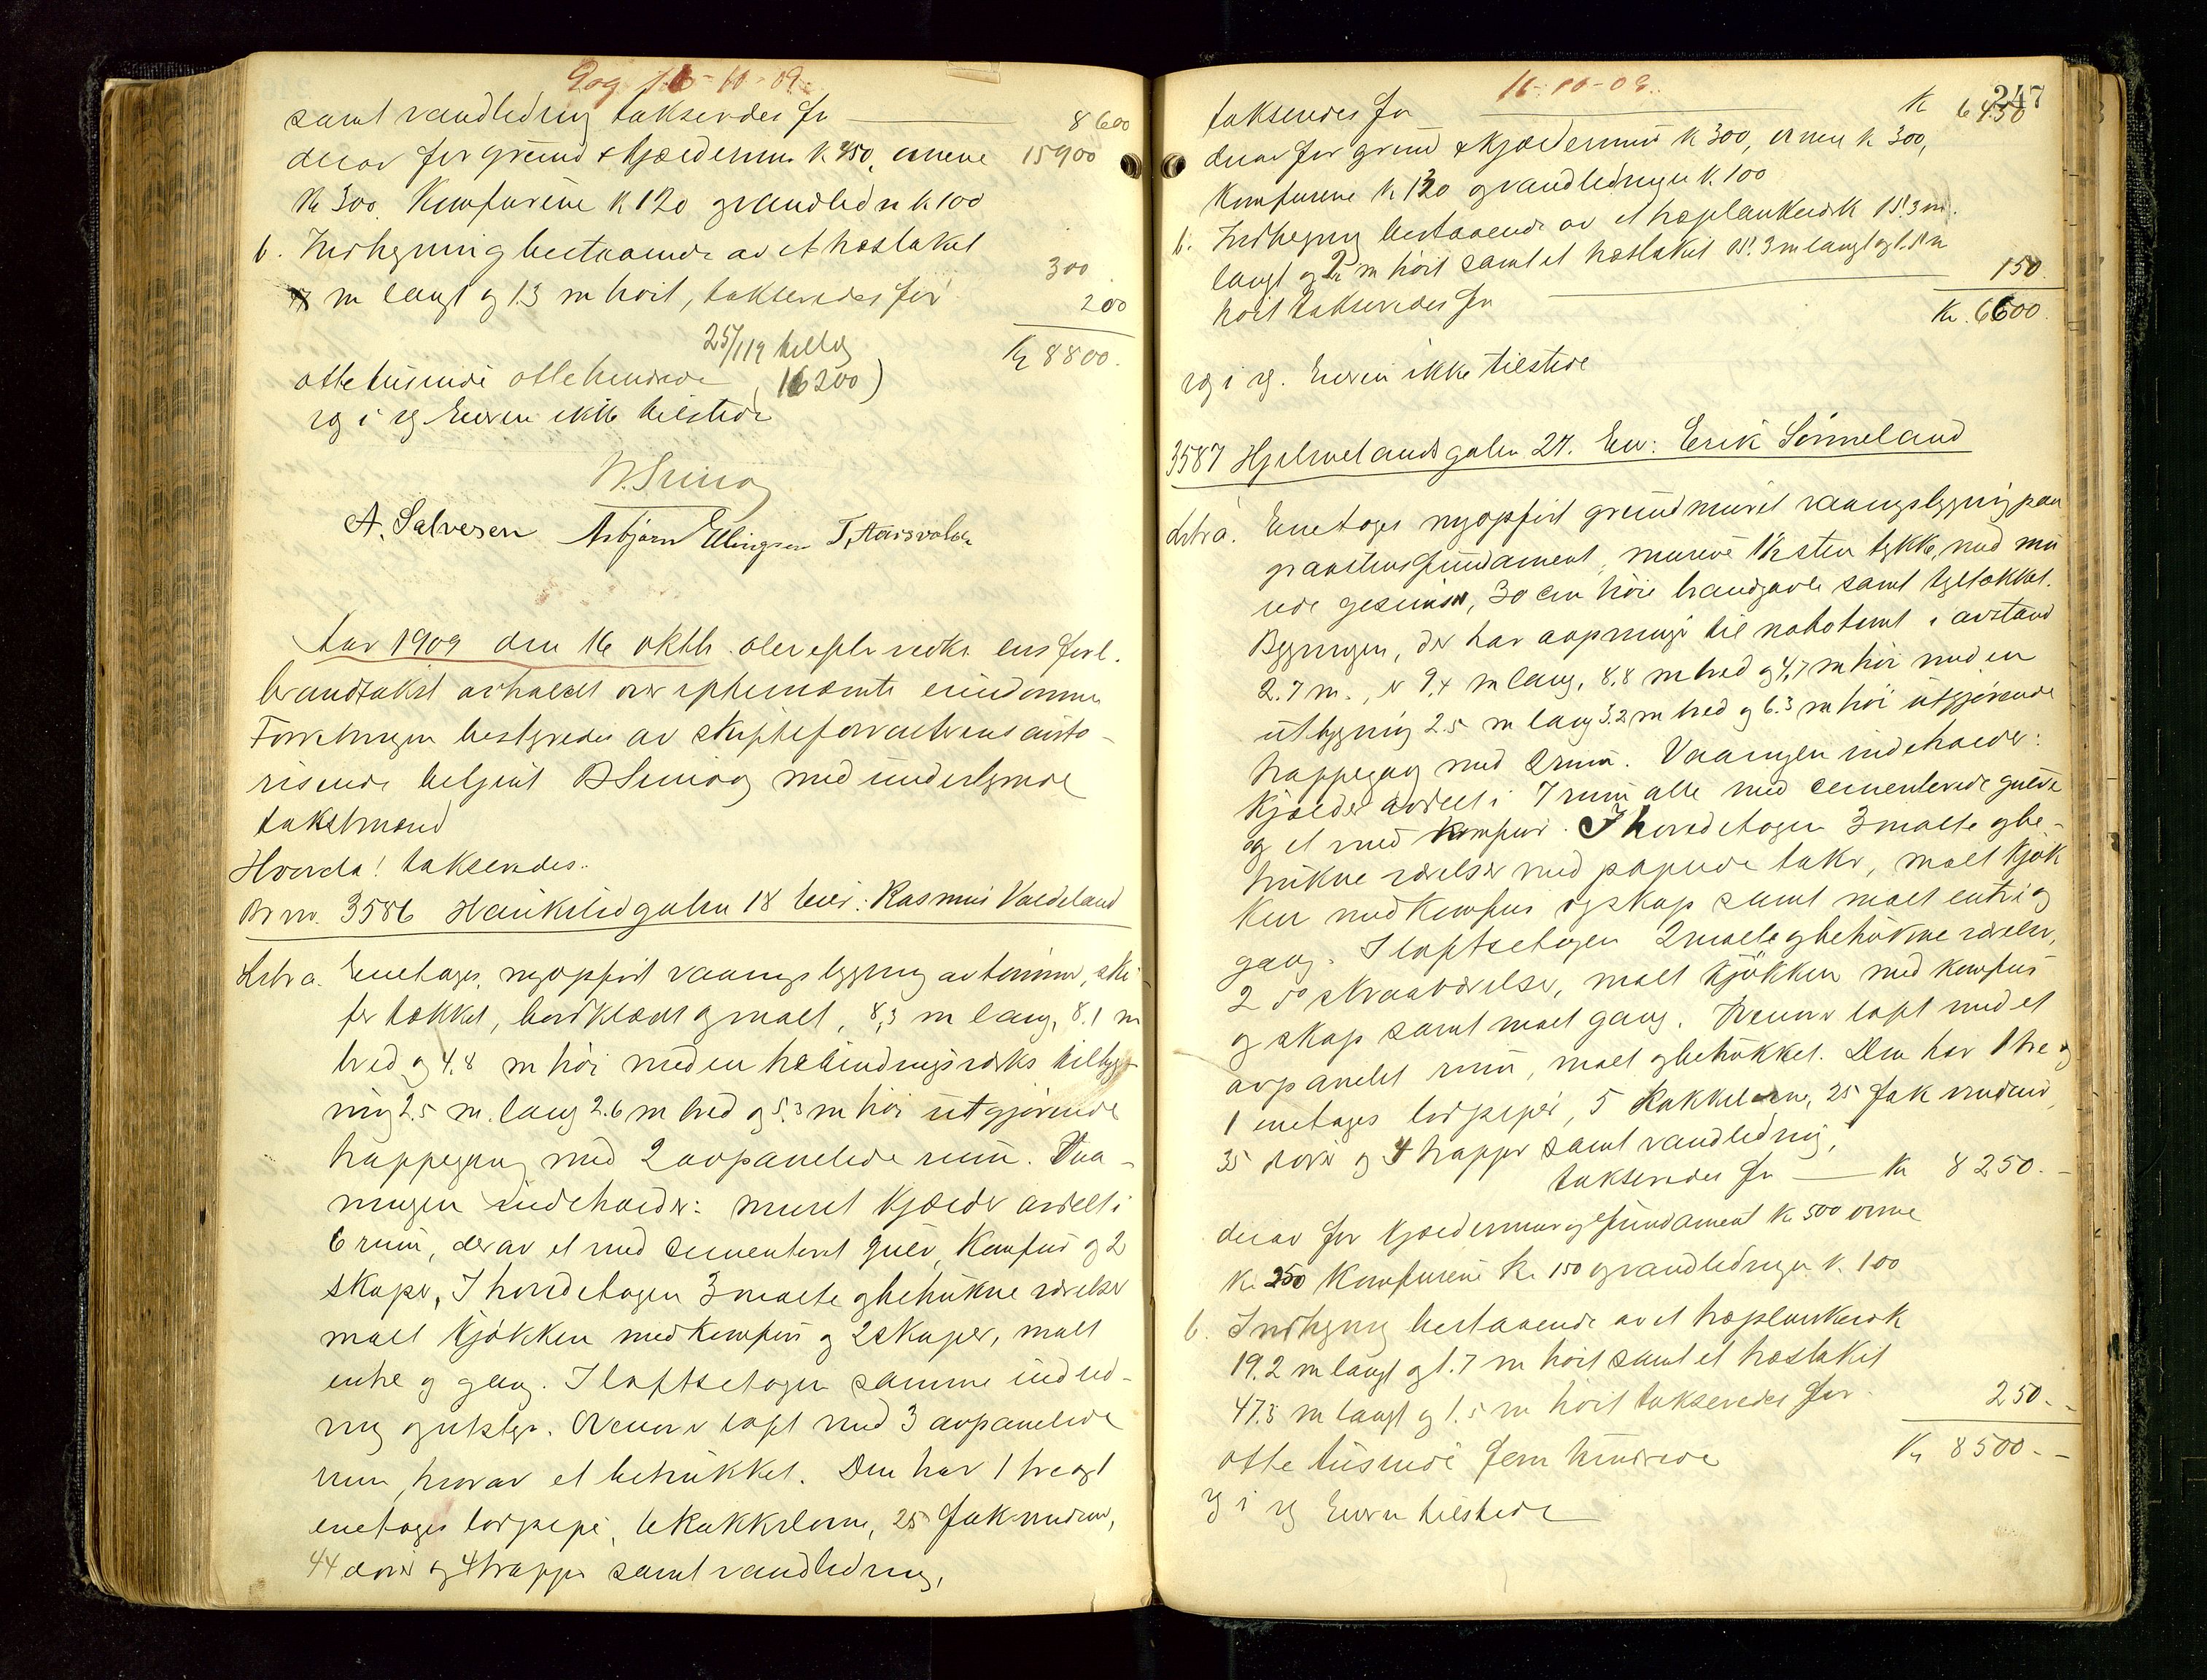 9 og 16-10-09.
samt vandledning takseredes for 8600
derav for grund & kjældermur k 450, ovnene 15900
kr 300. Komfurene k 120 og vandledn k 100
b. Indhegning bestaaende av et træstakit
m langt og 1.3 m høit, takseredes for 300
200
25/119
Kr 8800.
otte tusinde otte hundrede (16200)
rg i rg Eieren ikke tilstede
A. Salvesen Asbjørn Ellingsen T. Aarsvold
Aar 1909 den 16 oktbr. blev efter vedk.
brandtakst avholdt over efternævnte eiendomme
Forretningen bestyredes av skifteforvalterens auto-
riserede med undertegnede
takstmænd
Hvorda! takseredes.
Br no. 3586 Haukeligaten 18 Eier: Rasmus Vaedeland
Litr a. Enetages, nyopført vaaningsbygning av tømmer, ski-
fertækket, bordklædt og malt, 8,3 m lang, 8.1 m
bred og 4.8 m høi med en træbindingsværks tilbyg-
ning 2.5 m. lang 2.6 m bred og 5.3 m høi utgjørende
trappegang med 2 avpanelede rum. Vaa-
ningen indeholder: muret kjælder avdelt i
6 rum, derav et med cementeret gulv, Komfur og 2
skaper, I hovedetagen 3 malte og betrukne værelser
malt kjøkken med komfur og 2 skaper, malt
entre og gang. I loftsetagen samme indred-
ning og utstyr. Øverst loft med 3 avpanelede
rum, hvorav et betrukket. Den har 1 tre og 1
enetages lodpipe, 6 kakkelovne, 25 fak vinduer,
44 dører og 4 trapper samt vandledning,
16-10-09.
247
takseredes for k 6450
derav for grund & kjældermur k 300, ovnene k 300,
komfurene k 120 og vandledningen k. 100
b. Indhegning bestaaende av et træplankeværk 15.3 m.
langt og 2 m høit samt et træstakit 15.3 m langt og 1.5 m
høit takseredes for 150.
Kr. 6600.
rg i rg. Eieren ikke tilstede
3587 Hjelmelandsgaten 27. Eier: Erik Sønneland
Litr a. Enetages nyopført grundmuret vaaningsbygning paa
graastensfundament, murene 1½ sten tykke, med mu-
rede gesimser, 30 cm høie brandgavle samt tegltækket.
Bygningen, der har aapninger til nabotomt i avstand
2.7 m., er 9,4 m lang, 8.8 m bred og 4,7 m høi med en
utbygning 2.5 m lang 3.2 m bred og 6.3 m høi utgjørende
trappegang med 2 rum. Vaaningen indeholder:
Kjælder avdelt i 7 rum alle med cementerede gulve
og et med komfur. I hovedetagen 3 malte og be-
trukne værelser med papede take, malt kjøk-
ken med komfur og skap samt malt entre og
gang. I loftsetagen 2 malte og betrukne værelser,
2 do skraaværelser, malt kjøkken med komfur
og skap samt malt gang. Øverst loft med et
avpanelet rum, malt og betrukket. Den har 1 tre og
1 enetages lodpiper, 5 kakkelovne, 25 fak vinduer,
35 dører og 4 trapper samt vandledning,
takseredes for kr 8250.-
derav for kjældermur og fundament k 500 ovne
k. 250 komfurene k. 150 og vandledningen k. 100
b. Indhegning bestaaende av et træplankeværk
19.2 m langt og 1.7 m høit samt et træstakit
47.5 m langt og 1.5 m høit takseredes for 250.-
otte tusinde fem hundrede Kr 8500.-
rg i rg Eieren tilstede